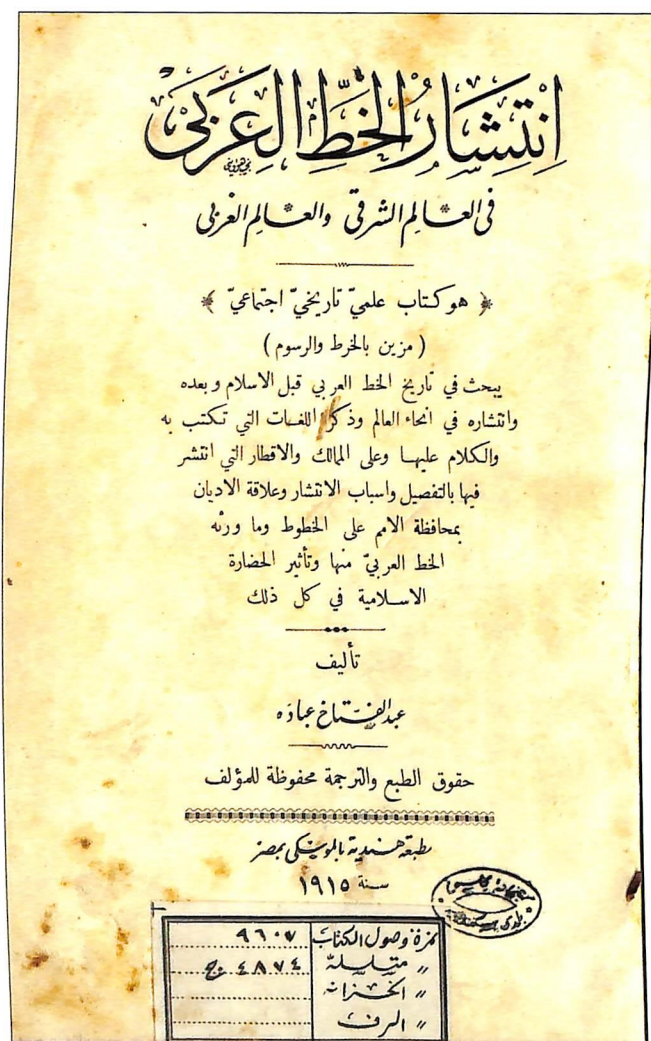 انتشار الخط العربي
في العالم الشرقي والعالم الغربي
هو كتاب علميّ تاريخيّ اجتماعيّ
( مزين بالخرط والرسوم )
يبحث في تاريخ الخط العربي قبل الاسلام وبعده
وانتشاره في انحاء العالم وذكر اللغات التي تكتب به
والكلام عليها وعلى الممالك والاقطار التي انتشر
فيها بالتفصيل واسباب الانتشار وعلاقة الاديان
بمحافظة الامم على الخطوط وما ورثه
الخط العربيّ منها وتأثير الحضارة
الاسلامية في كل ذلك
تأليف
عبد الفتاح عباده
حقوق الطبع والترجمة محفوظة للمؤلف
مطبعة هندية بالموسكي بمصر
سنة ١٩١٥
نمرة وصول الكتاب ٩٦٠٧
" متسلسلة ٤٨٧٤ ج
" الخزانه
" الرف